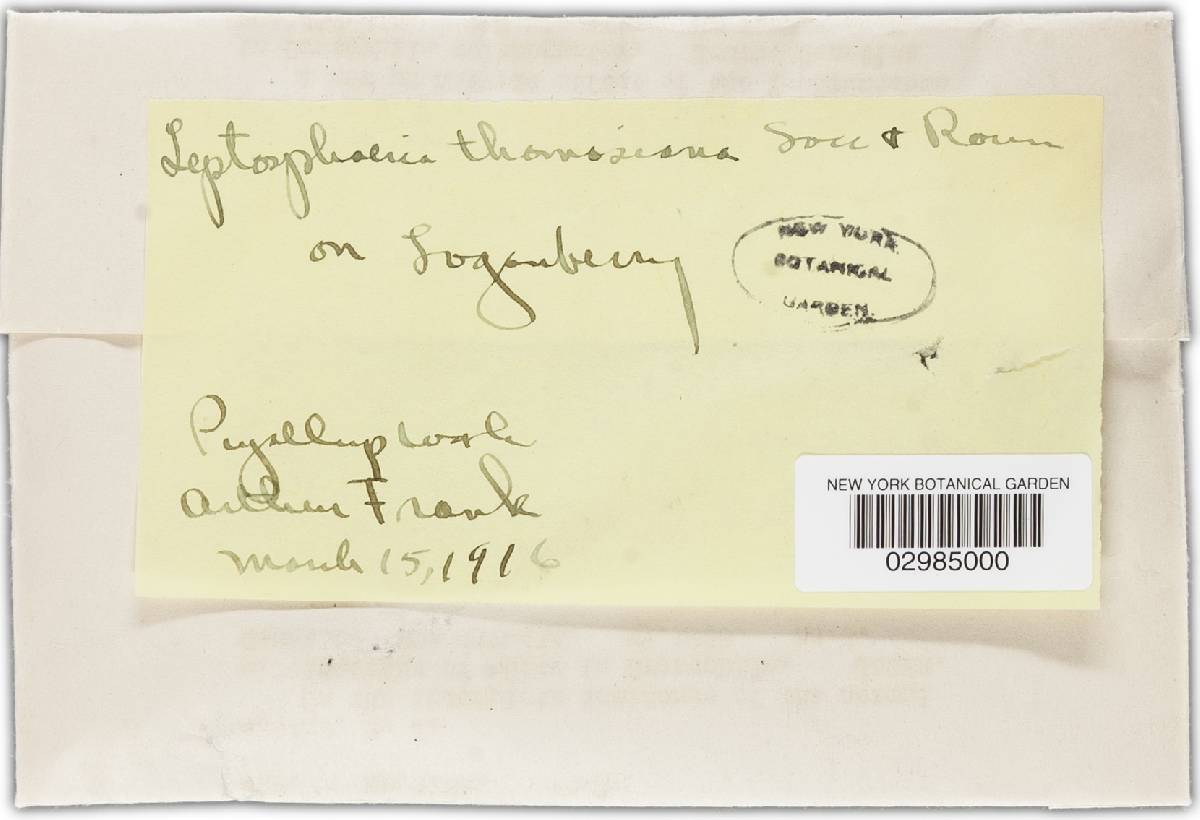 Leptosphaeria thomasiana Sacc & Roum
on Loganberry
NEW YORK
BOTANICAL
GARDEN.
Puyallup Wash
Arthur Frank
March 15, 1916
NEW YORK BOTANICAL GARDEN
02985000